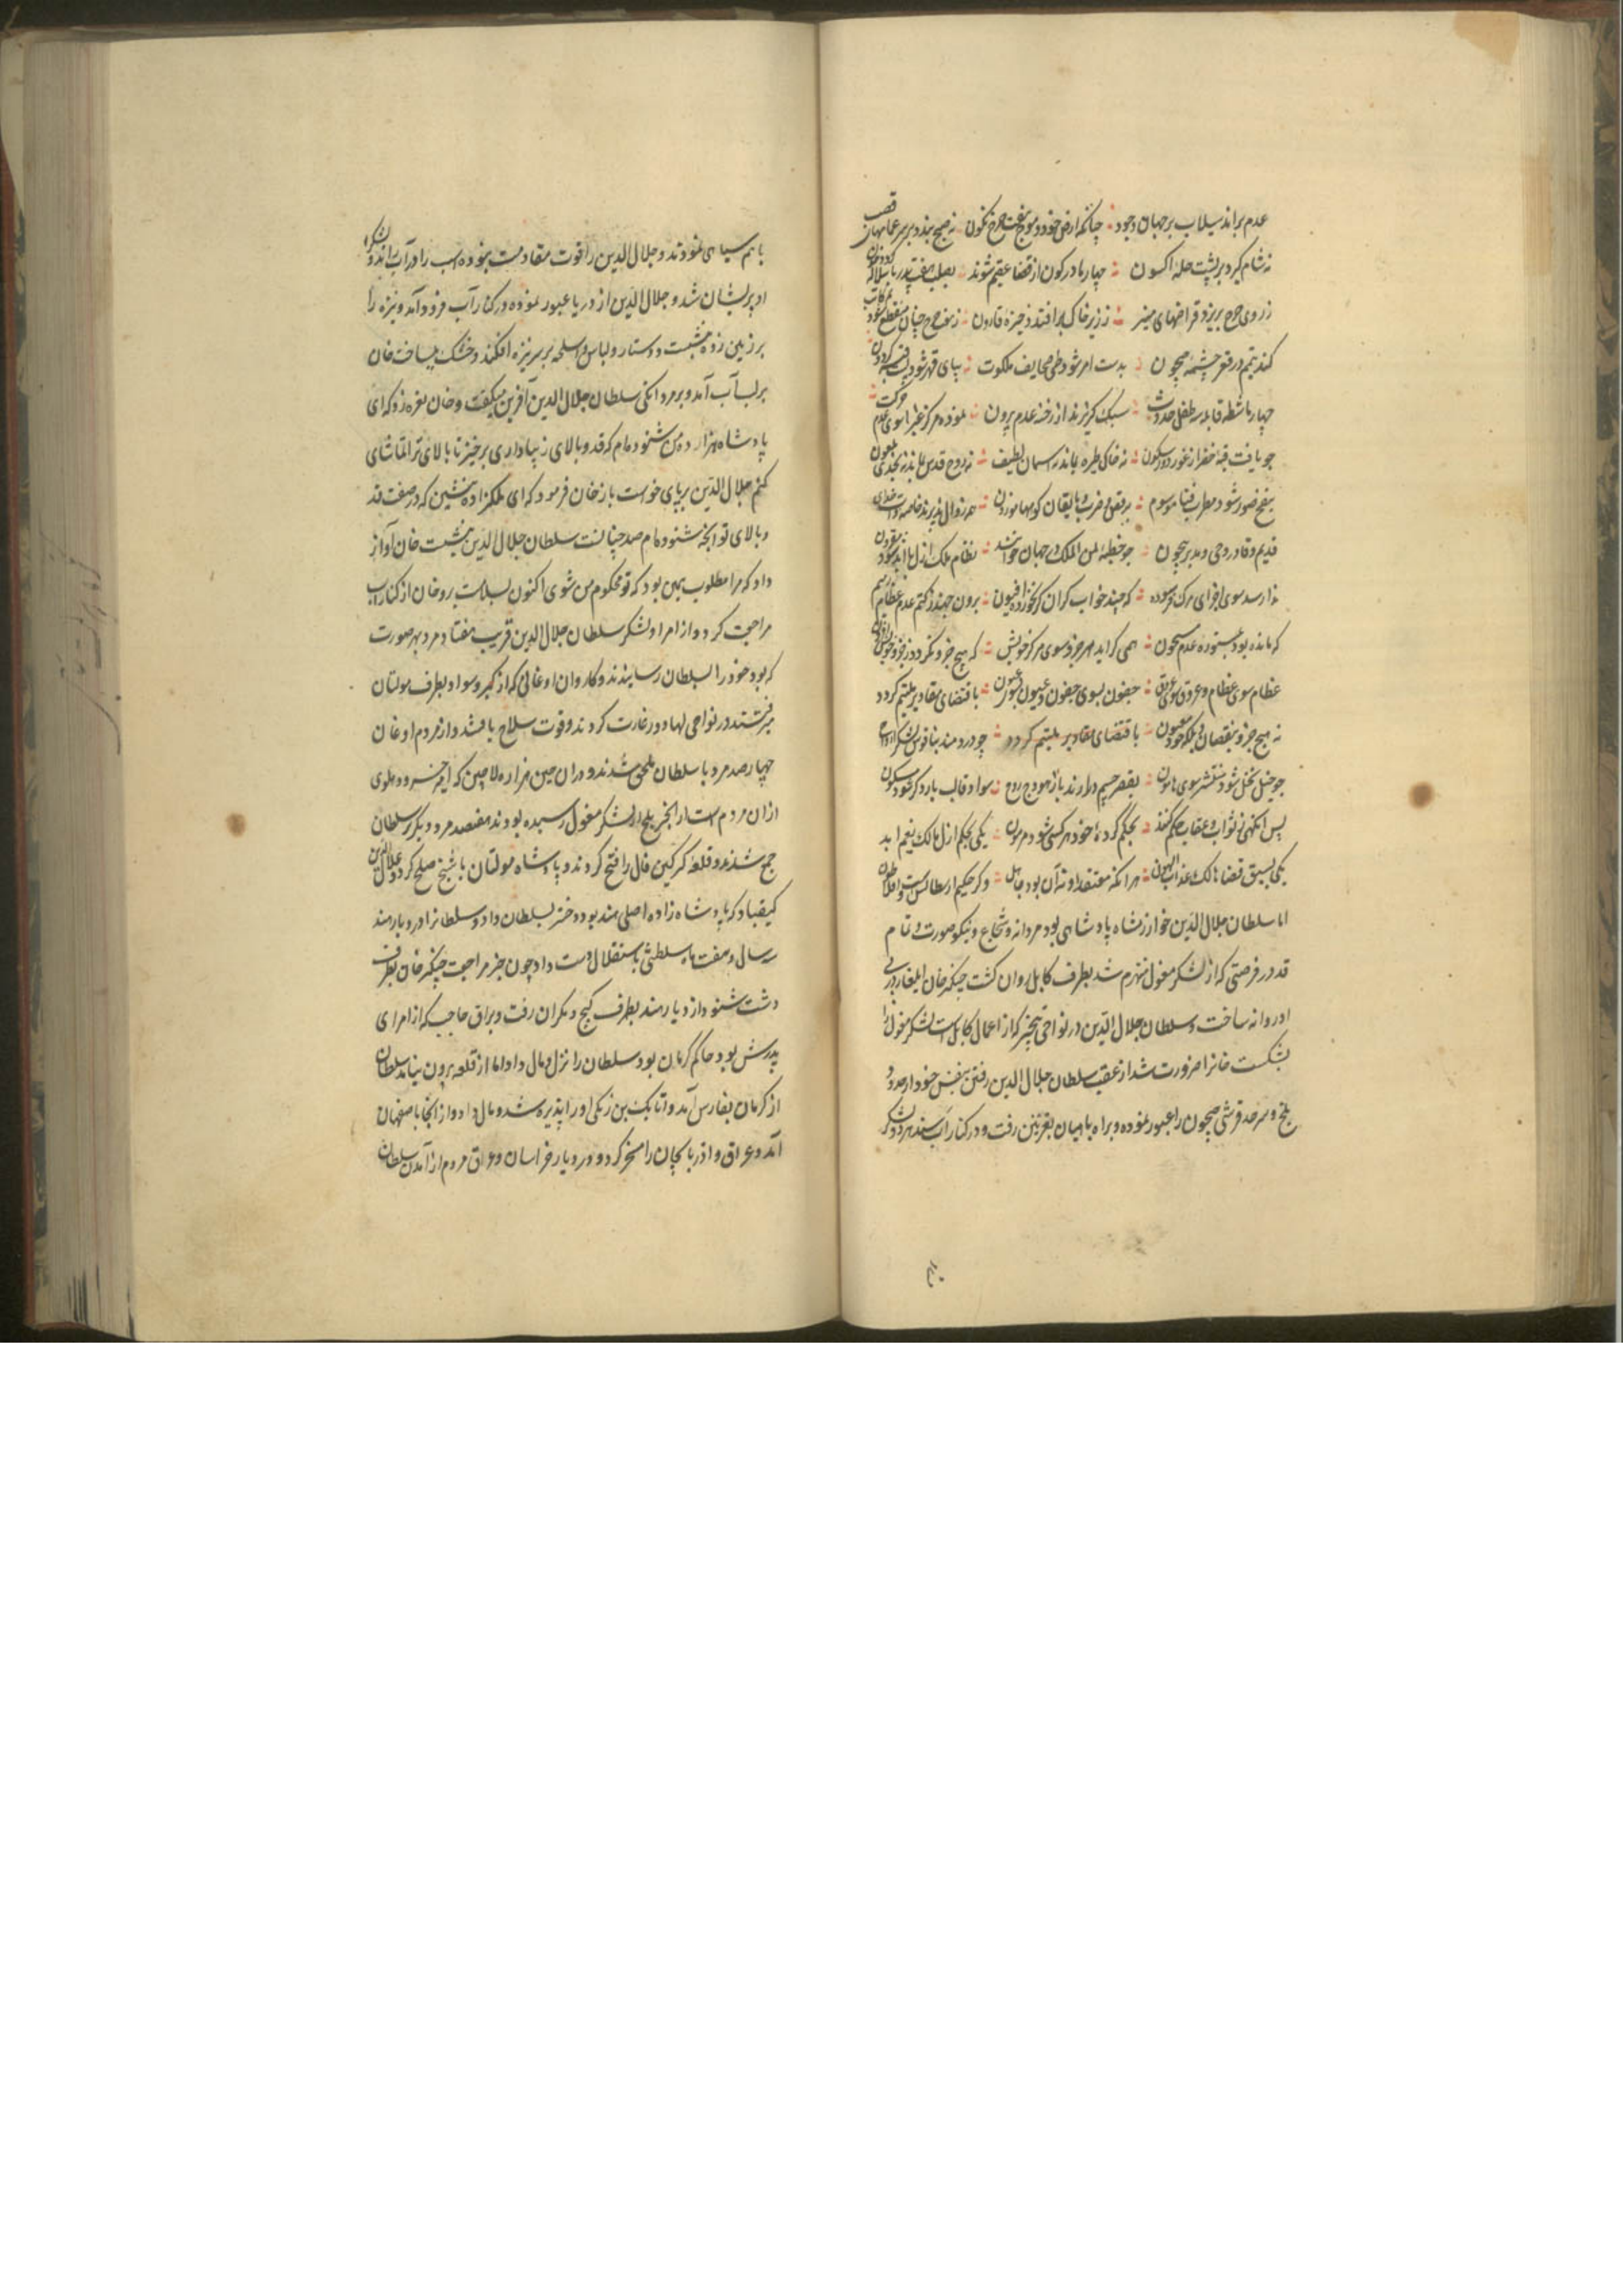 عدم براند سیلاب بر جهان وجود چنانکه ارض خورد موج هفت چرخ نگون نه صبح بندد بر سر عمامهای قصب
نه شام گیرد بر پشت حله اکسون چهار مادر کون از قضا عقیم شوند بصلب هفت پدر با سلاله گردون
ز روی چرخ بریزد قراضهای منیر ز زیر خاک برافتد ذخیره قارون
کند تیمم در قعر چشمه جیحون بدست امر شود طی صحایف ملکوت بپای قهر شود
چهار ماشطه قابله سه طفل حدوث سبک گریزند از رخنه عدم بیرون نموده مرکز غبرا سوی عدم حرکت
چو یافت قبه خضرا ز غور دور سکون نه خاک تیره بماند نه اسمان لطیف نه روح قدس بماند نه نجدی ملعون
بنفخ صور شود مطرب فنا موسوم برقص و ضرب و بایقان کوهها موزون همه زوال پذیرند خدای
قدیم و قادر و حی و مدبر بیچون چو خطبه لمن الملک بر جهان خواند نظام ملک ازل با ابد شود مقرون
ندا رسد سوی اجزای مرک فرسوده که چند خواب گران گر نخورده افیون برون جهند ز کتم عدم عظام رمیم
که مانده بود بمطموره عدم مسجون همی گراید هر جزو سوی مرکز خویش که هیچ جزو نگردد ز جزو خویش
عظام سوی عظام و عروق سوی عروق جفون بسوی جفون و عیون بسوی عیون باقتضای مقادیر ملتئم گردد
نه هیچ جزو بنقصان باقتضای مقادیر ملتئم گردد چو دردمند بناقوس لشکر ارواح
چو خیل نحل شود منتشر سوی هامون بقصر جسم درارند باز هودج روح سواد قالب بار دگر شود مسکون
پس انگهی ز ثواب و عقاب حکم کنند بحکم کرده خود هر کسی شود مرهون یکی بحکم ازل مالک نعیم ابد
یکی بسبق قضا هالک عذاب الهون هر انکه معتقد او نه آن بود جاهل وگر حکیم ارسطالیس است و افلاطون
اما سلطان جلال الدین خوارزشاه پادشاهی بود مردانه و شجاع و نیکو صورت و تمام
قد در فرصتی که از لشکر مغول منهزم شد بطرف کابل روان گشت چنگیز خان ایلغار در پی
او روانه ساخت و سلطان جلال الدین در نواحی پنجیر که از اعمال کابل است لشکر مغول را
بشکست خانرا ضرورت شد از عقب سلطان جلال الدین رفتن بنفس خود از حدود
بلخ و سرحد قرشی جیحون را عبور نموده و براه بامیان بغزنین رفت و در کنار آب سند هر دو لشکر
باهم سیاهی نمودند و جلال الدین را قوت مقاومت نبوده اسب را در آب راند و لشکر
او پریشان شد و جلال الدین از دریا عبور نموده در کنار آب فرود آمد و نیزه را
بر زمین زده بنشست و دستار و لباس و اسلحه بر سر نیزه افکند و خشک میساخت خان
بر لب آب آمد و بر مردانکی سلطان جلال الدین آفرین میگفت و خان نعره زد که ای
پادشاه هزار ده من شنوده‌ام که قد و بالای زیبا داری برخیز تا بالای ترا تماشای
کنم جلال الدین برپای خواست باز خان فرمود که ای ملکزاده بنشین که در صفت قد
و بالای تو انچه شنوده‌ام صد چنانست سلطان جلال الدین بنشست خان آواز
داد که مرا مطلوب همین بود که تو محکوم من شوی اکنون بسلامت برو خان از کنار اب
مراجعت کرد و از امرا و لشکر سلطان جلال الدین قریب هفتاد مرد بهر صورت
که بود خود را بسلطان رسانیدند و کاروان اوغانی که از کیر و سواد بطرف مولتان
میرفتند در نواحی لهاور غارت کردند و قوت سلاح یافتند و از مردم اوغان
چهارصد مرد با سلطان ملحق شدند و دران حین هزاره لاچین که امیر خسرو دهلوی
ازان مردم است از الجر بلخ از لشکر مغول رسیده بودند هفتصد مرد دیگر بر سلطان
جمع شدند و قلعه کرکین فال را فتح کردند و پادشاه مولتان با شیخ صلح کرد و علاء الدین
کیقباد که پادشاه زاده اصلی هند بود دختر بسلطان داد و سلطانرا در دیار هند
سه سال و هفت ماه سلطنتی باستقلال دست داد چون خبر مراجعت چنگیز خان بطرف
دشت شنود از دیار هند بطرف کیج و مکران رفت و براق حاجب که از امرای
پدرش بود حاکم کرمان بود سلطان را نزل و مال داد اما از قلعه بیرون نیامد سلطان
از کرمان بفارس آمد و اتابک بن زنکی او را پذیره شد و مال داد و از انجا باصفهان
آمد و عراق و اذربایجان را مسخر کرد و در دیار خراسان و عراق مردم از آمدن سلطان